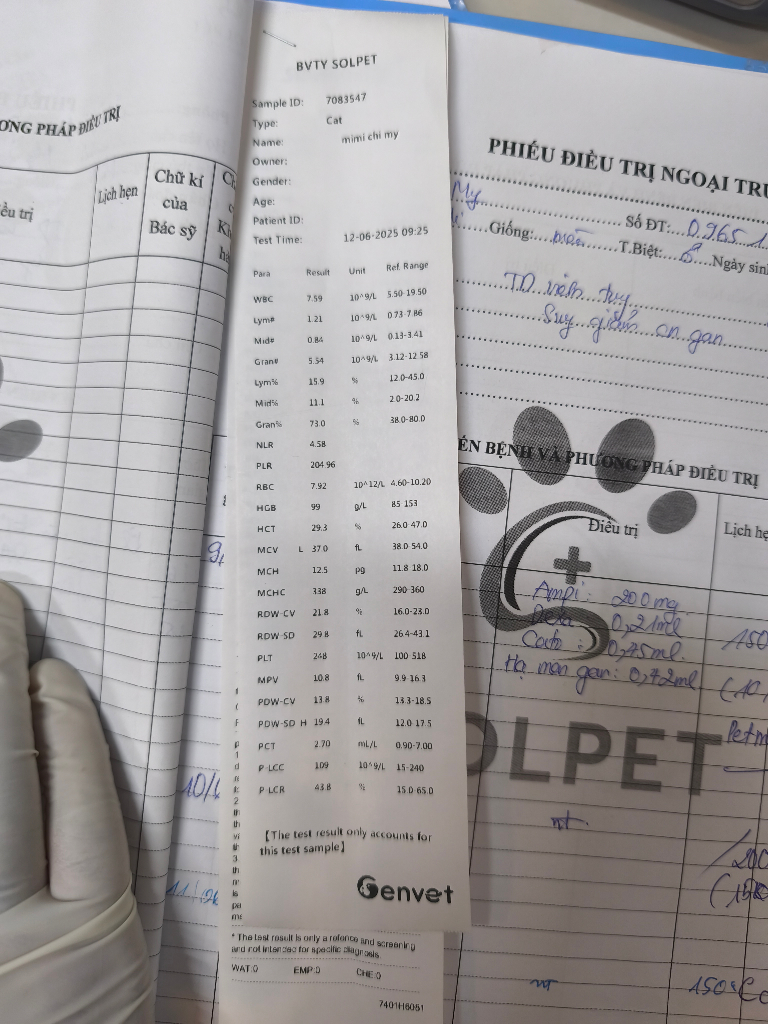 BVTY SOLPET
Sample ID: 7083547
Type: Cat
Name: mimi chi my
Owner:
Gender:
Age:
Patient ID:
Test Time: 12-06-2025 09:25
Para Result Unit Ref. Range
WBC 7.59 10^9/L 5.50-19.50
Lym# 1.21 10^9/L 0.73-7.86
Mid# 0.84 10^9/L 0.13-3.41
Gran# 5.54 10^9/L 3.12-12.58
Lym% 15.9 % 12.0-45.0
Mid% 11.1 % 2.0-20.2
Gran% 73.0 % 38.0-80.0
NLR 4.58
PLR 204.96
RBC 7.92 10^12/L 4.60-10.20
HGB 99 g/L 85-153
HCT 29.3 % 26.0-47.0
MCV L 37.0 fL 38.0-54.0
MCH 12.5 pg 11.8-18.0
MCHC 338 g/L 290-360
RDW-CV 21.8 % 16.0-23.0
RDW-SD 29.8 fL 26.4-43.1
PLT 248 10^9/L 100-518
MPV 10.8 fL 9.9-16.3
PDW-CV 13.8 % 13.3-18.5
PDW-SD H 19.4 fL 12.0-17.5
PCT 2.70 mL/L 0.90-7.00
P-LCC 109 10^9/L 15-240
P-LCR 43.8 % 15.0-65.0
【The test result only accounts for
this test sample】
Genvet
* The test result is only a refence and screening
and not intended for specific diagnosis
WAT:0 EMP:0 CHE:0
7401H6051
ƠNG PHÁP ĐIỀU TRỊ
ều trị
Lịch hẹn
Chữ kí
của
Bác sỹ
PHIẾU ĐIỀU TRỊ NGOẠI TRÚ
My Số ĐT: 0965
Giống: T.Biệt: Ngày sinh
TD viêm tụy
Suy giảm cn gan
ẾN BỆNH VÀ PHƯƠNG PHÁP ĐIỀU TRỊ
Điều trị Lịch hẹ
Ampi: 200mg
Dexa 0,21ml
Cato: 0,75ml
Hạ men gan: 0,72ml
150
(10,
OLPET
nt
200
nt 150